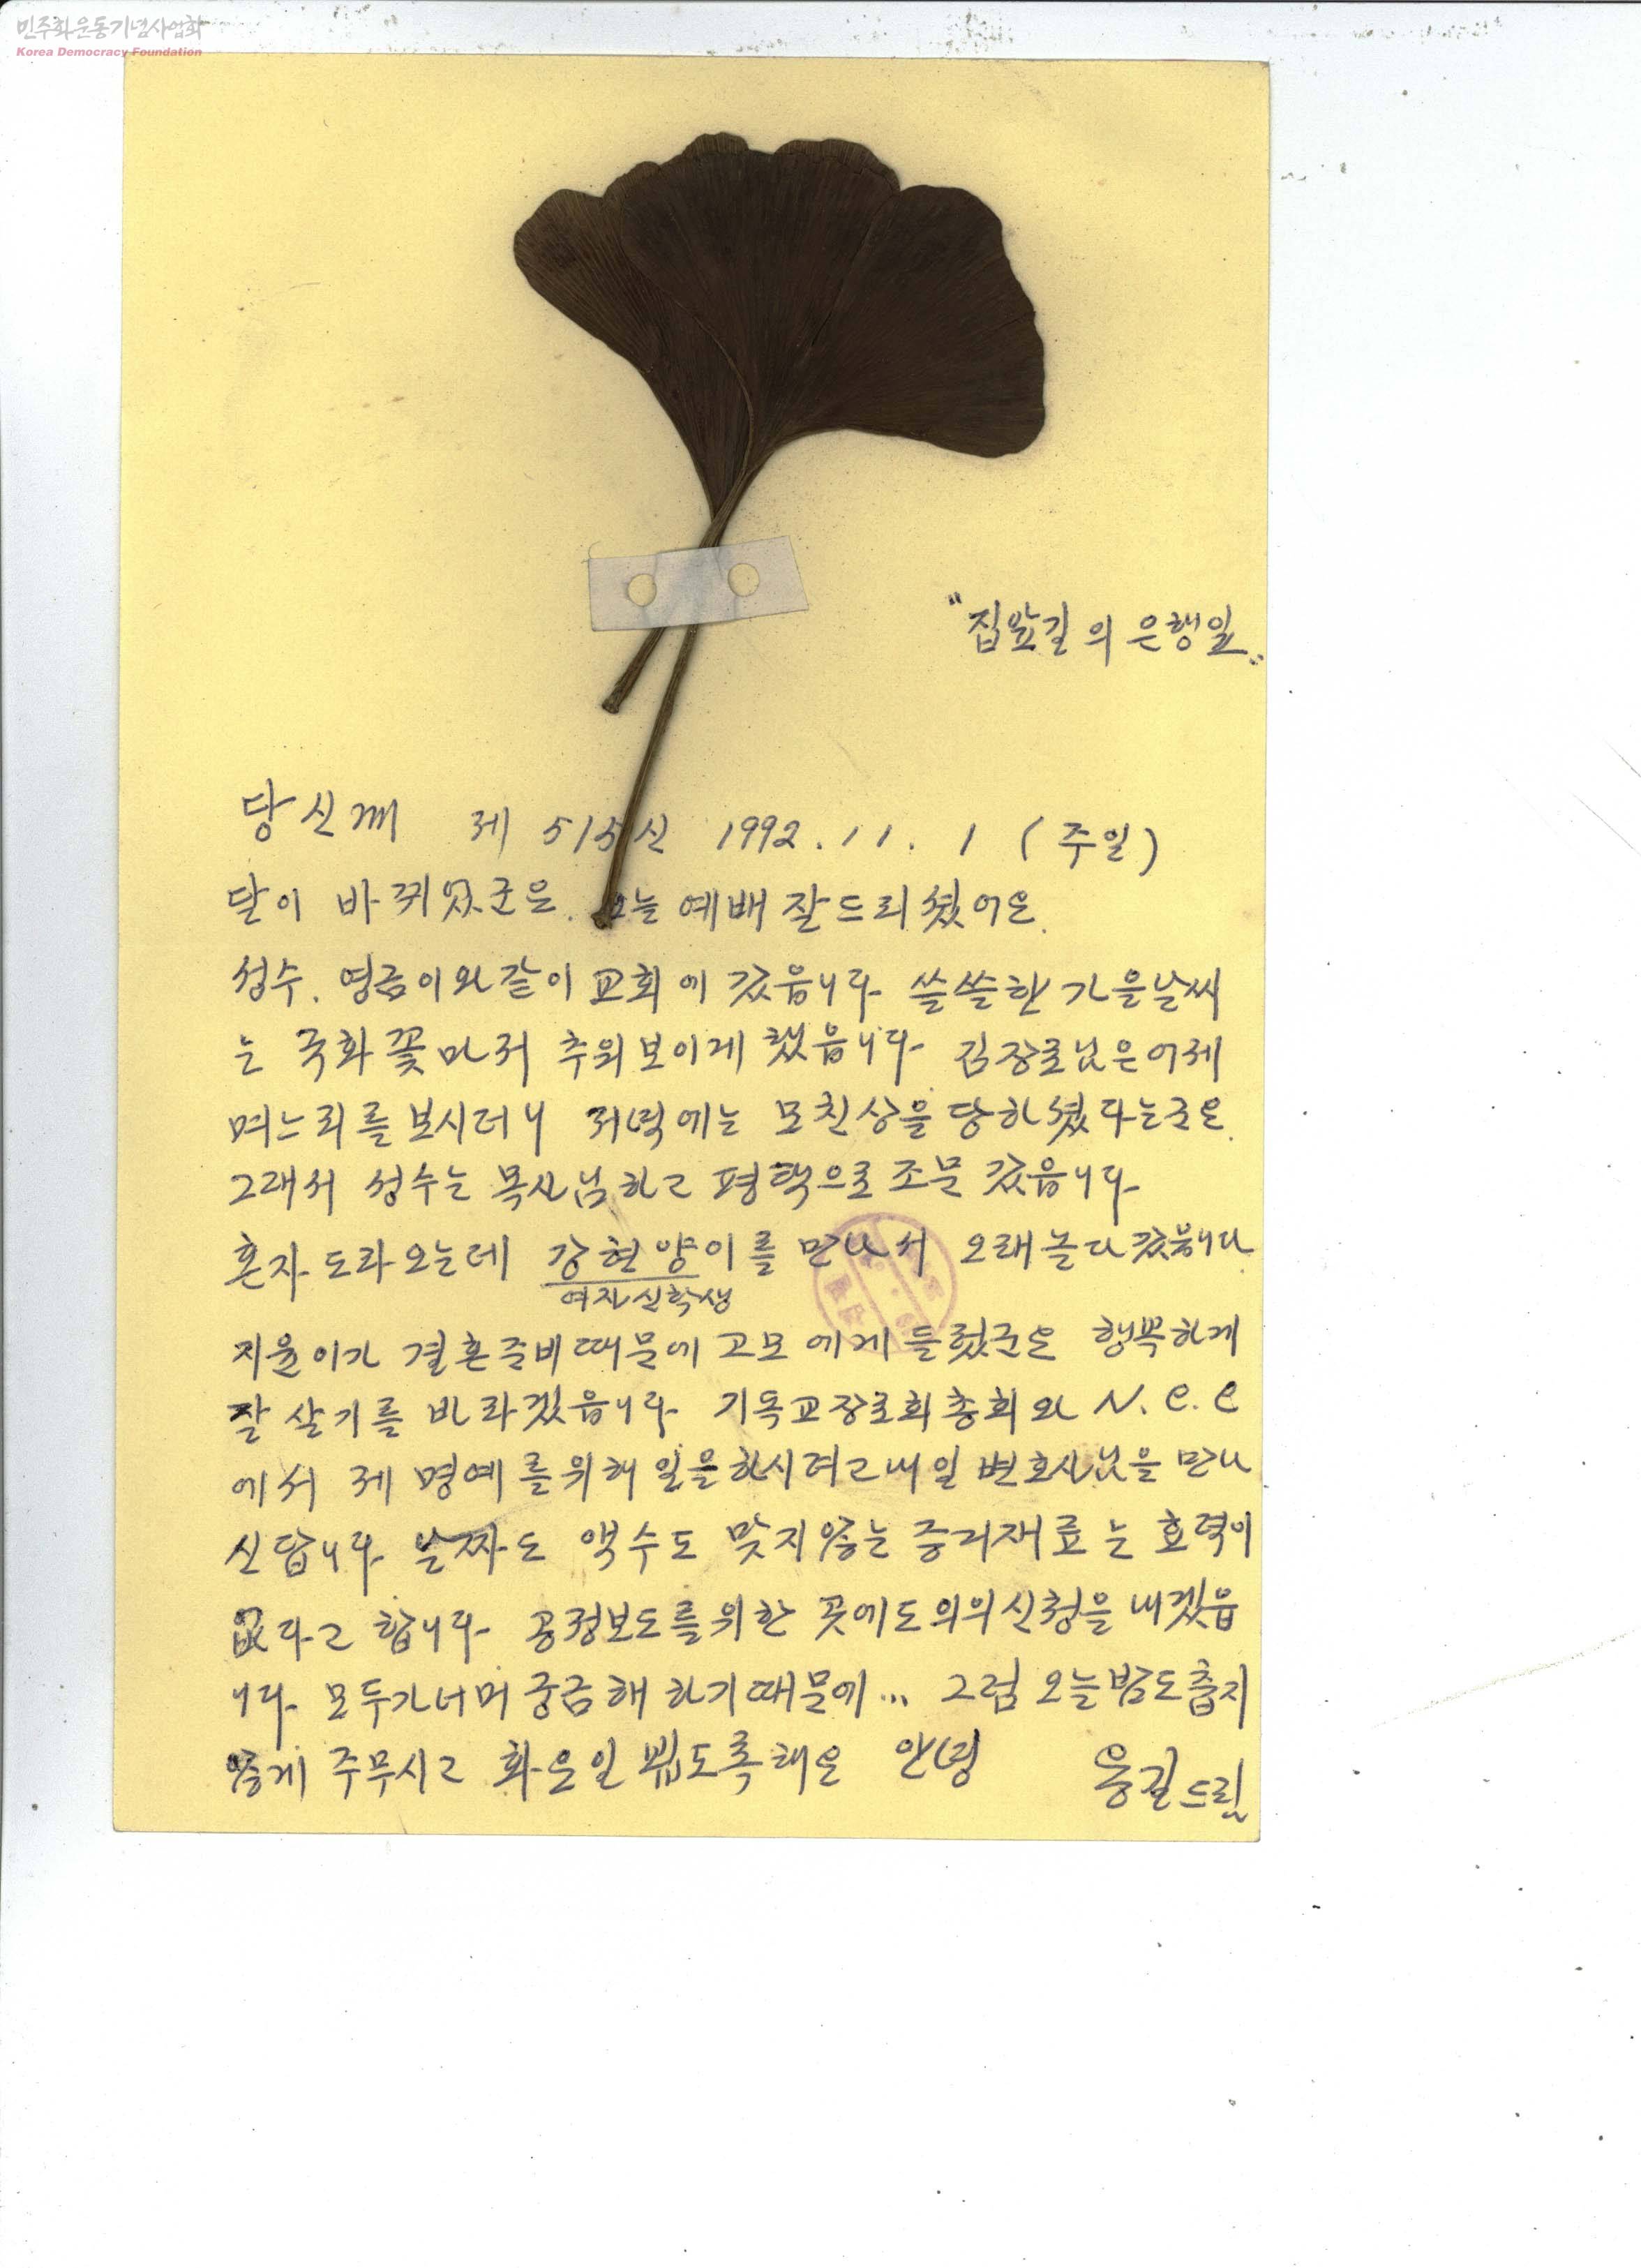 민주화운동기념사업회
Korea Democracy Foundation
"집앞길의 은행잎"
당신께 제 515신 1992. 11. 1 (주일)
달이 바뀌었군요. 오늘 예배 잘드리셨어요.
성수. 영금이와같이 교회에 갔읍니다. 쓸쓸한 가을날씨
는 국화꽃마저 추워보이게 했읍니다. 김장로님은어제
며느리를 보시더니 저녁에는 모친상을 당하셨다는군요.
그래서 성수는 목사님하고 평택으로 조문 갔읍니다.
혼자 도라오는데 강현양이를 만나서 오래놀다갔읍니다
여자신학생
지윤이가 결혼준비때문에 고모에게 들렸군요 행복하게
잘 살기를 바라겠읍니다. 기독교장로회총회와 N.C.C
에서 제 명예를위해 일을하시려고내일 변호사님을 만나
신답니다. 날짜도 액수도 맞지않는 증거재료는 효력이
없다고 합니다. 공정보도를위한 곳에도의의신청을 내겠읍
니다. 모두가너머 궁금해 하기때문에... 그럼 오늘밤도춥지
않게 주무시고 화요일 뵙도록해요 안녕 용길드림